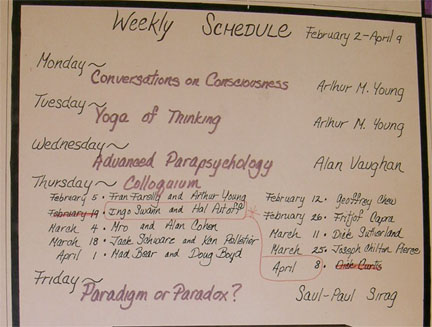 Weekly Schedule February 2-April 9
Monday~
Conversations on Consciousness Arthur M. Young
Tuesday~
Yoga of Thinking Arthur M. Young
Wednesday~
Advanced Parapsychology Alan Vaughan
Thursday~ Colloquium
February 5 • Fran Farelly and Arthur Young
February 19 • Ingo Swann and Hal Putoff
March 4 • Mro and Alan Cohen
March 18 • Jack Schware and Ken Pelletier
April 1 • Mad Bear and Doug Boyd
February 12 • Geoffrey Chew
February 26 • Fritjof Capra
March 11 • Dick Sutherland
March 25 • Joseph Chilton Pierce
April 8 • Dick Curtis
Friday~
Paradigm or Paradox? Saul-Paul Sirag